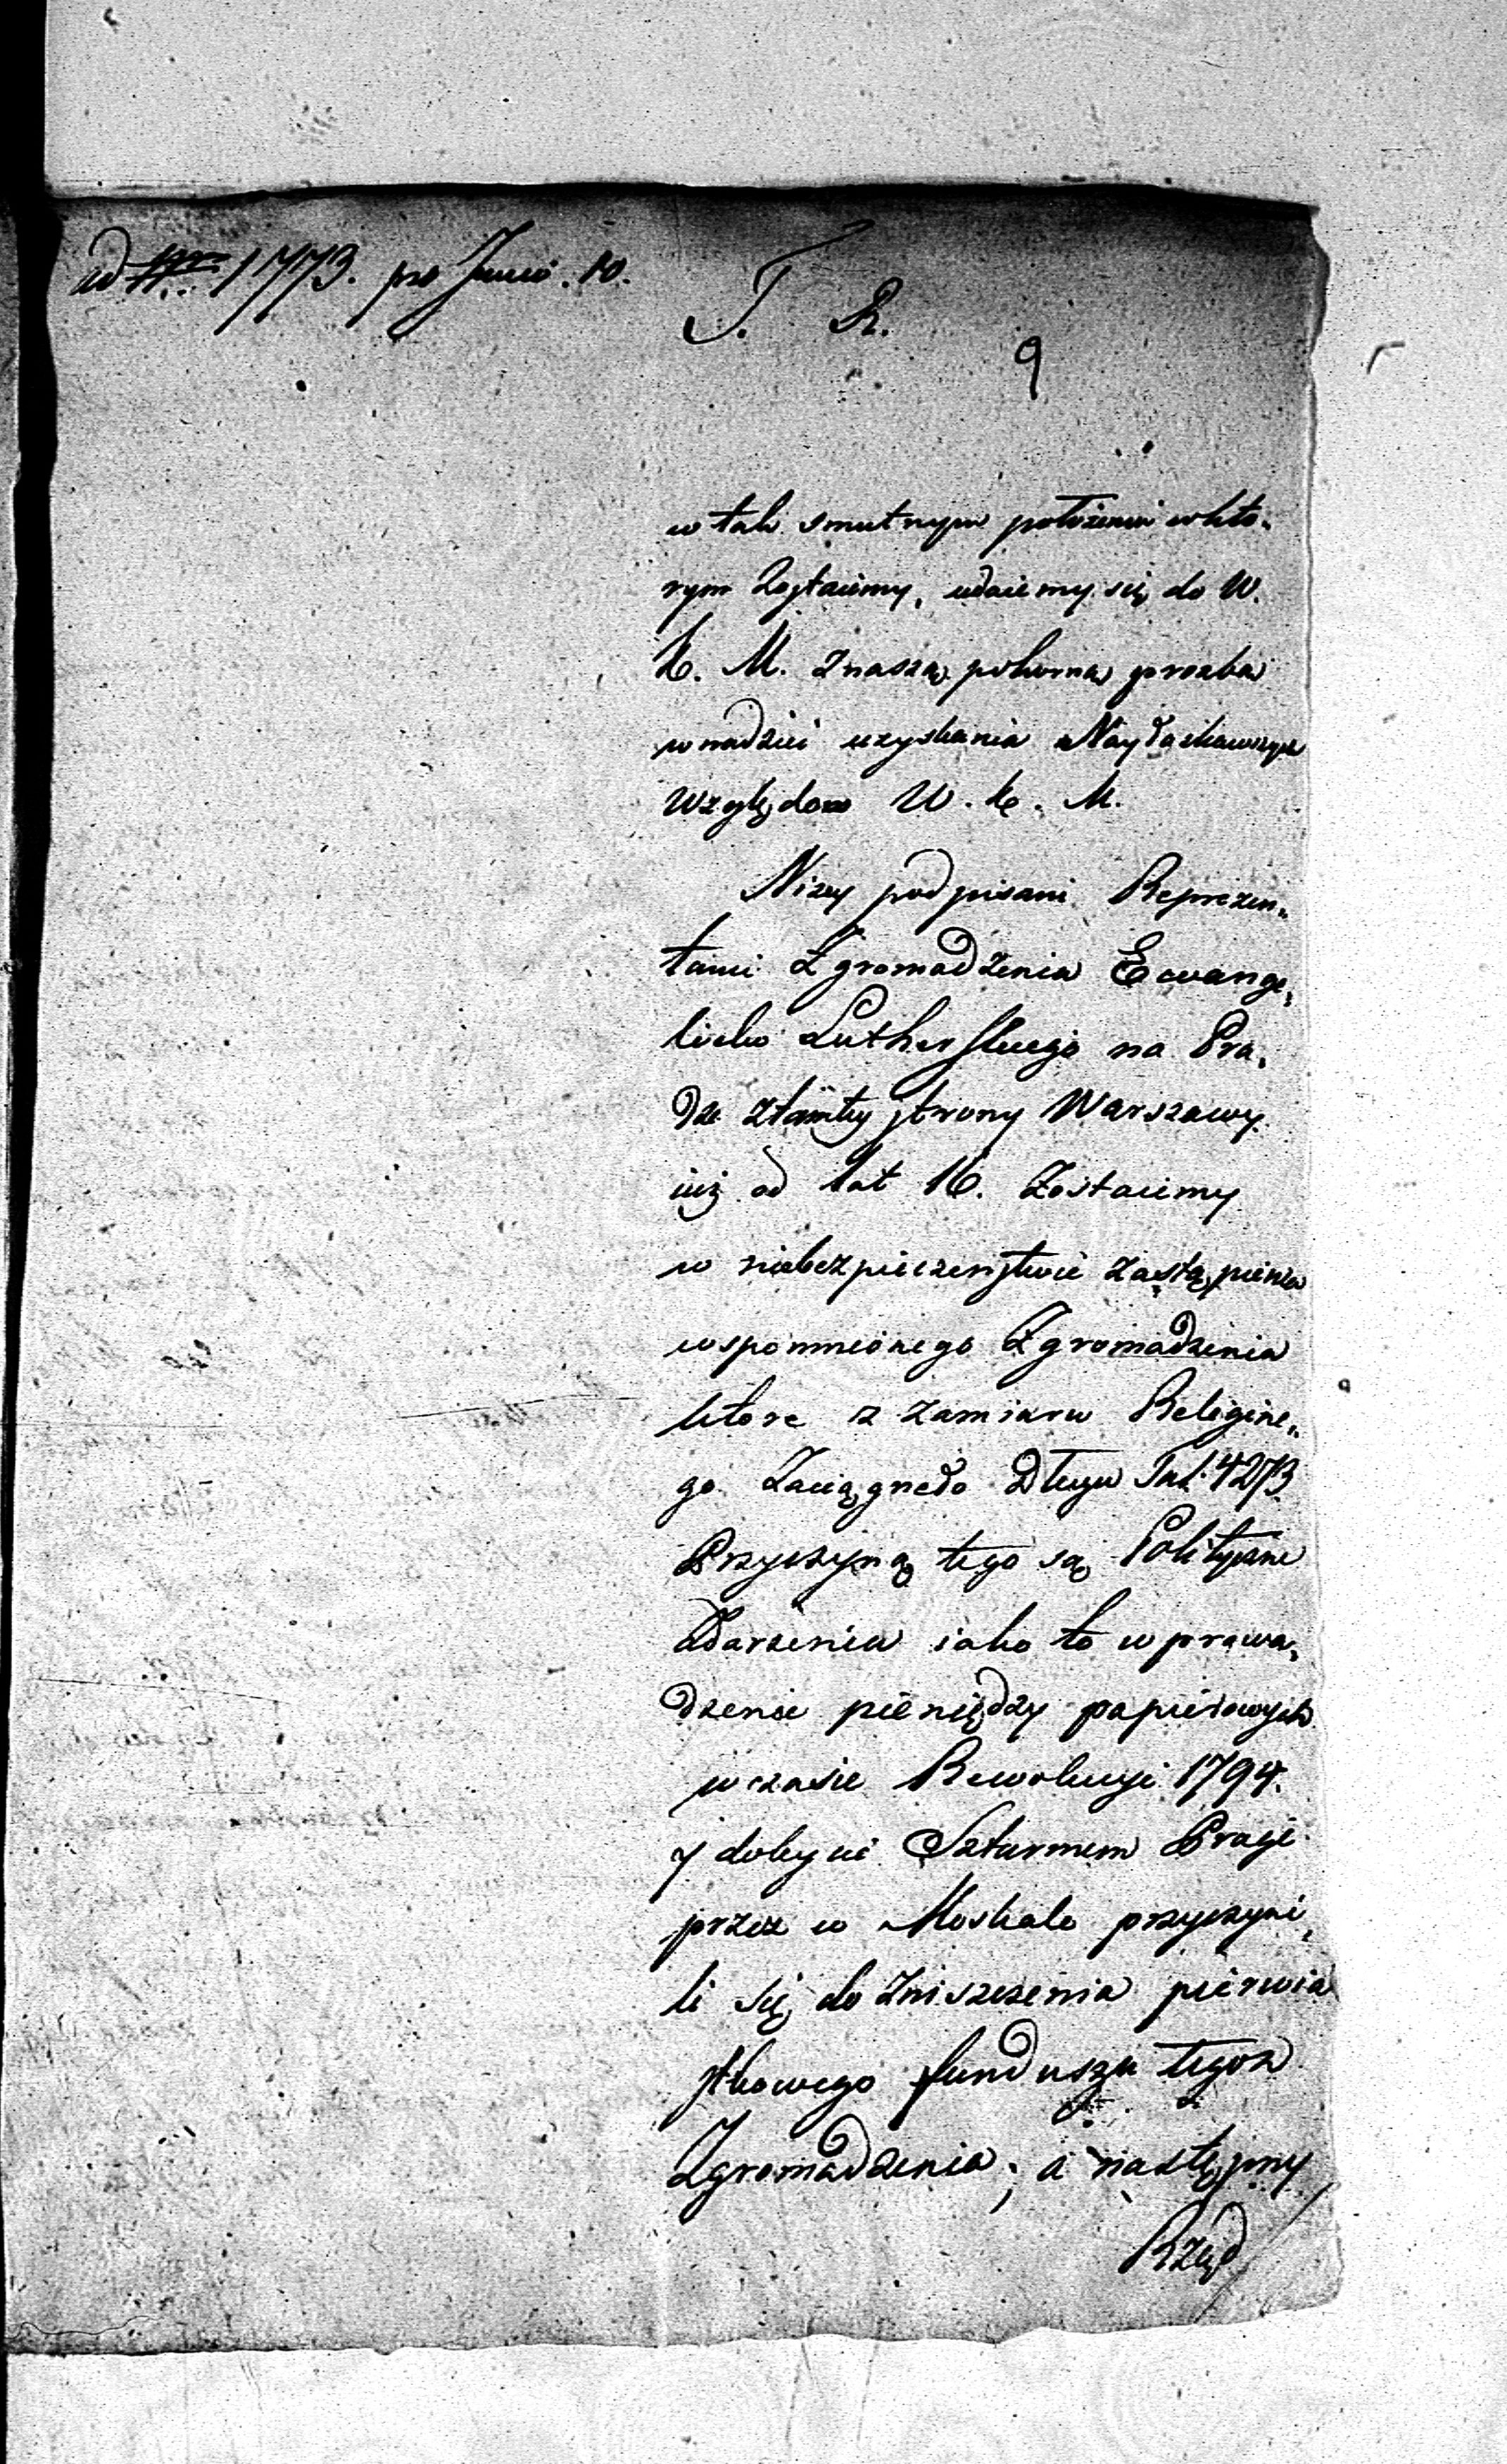 ad 1773. pro Junio. 10.
T. R.
9
w tak smutnym położeniu w kto„
rym Zostaiemy, udaiemy się do W.
K. M. z naszą pokorną prozbą
w nadziei uzyskania Nayłaskawszych
Względow W. K. M.
Nizey podpisani Reprezen„
tanci Zgromadzenia Ewange„
licko Lutherskiego na Pra„
dze z tamtey strony Warszawy
iuż od lat 16. Zostaiemy
w niebezpieczenstwie zastąpienia
wspomnionego Zgromadzenia
ktore z zamiaru Religine„
go Zaciągneło Długu Tal. 4273
Przyczyną tego są Polityczne
Zdarzenia iako to wprowa„
dzenie pieniędzy papierowych
w czasie Rewolucyi 1794.
y dobycie Szturmem Pragi
przez w Moskale przyczyni„
li się do Zniszczenia pierwia
stkowego funduszu tegoz
Zgromadzenia; a następny
Rząd